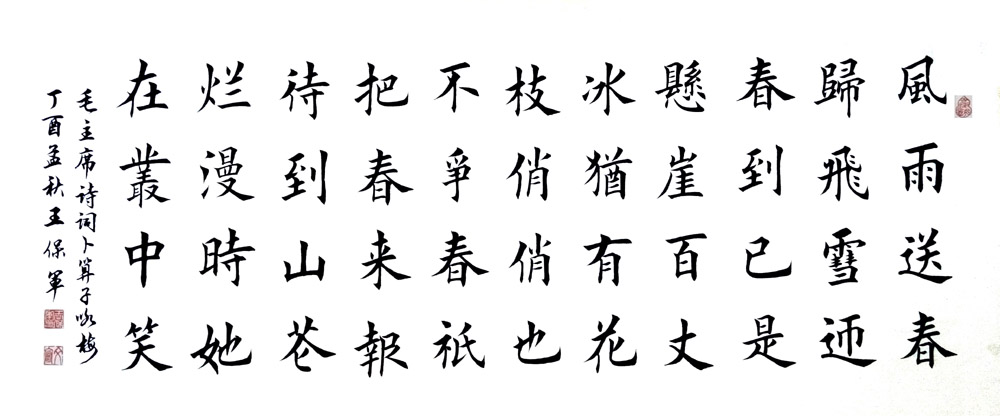 風雨送春
歸飛雪迎
春到已是
懸崖百丈
冰猶有花
枝俏俏也
不爭春祇
把春来報
待到山芲
烂漫時她
在叢中笑
毛主席诗词卜算子咏梅
丁酉孟秋王保軍